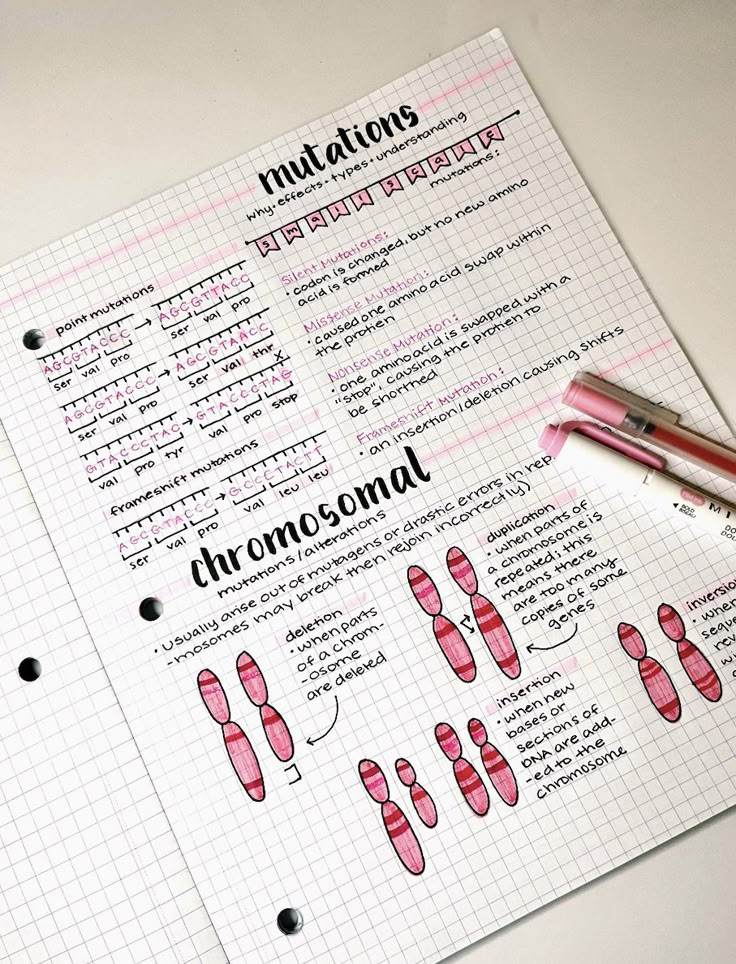 mutations
why • effects • types • understanding
small scale
mutations:
point mutations
AGCGTACCC → AGCGTTACC
ser val pro ser val pro
AGCGTACCC → AGCGTAACC
ser val pro ser val thr
GTACCCTAC → GTACCCTAG
val pro tyr val pro stop
X
frameshift mutations
AGCGTACCC → GCCCTACTT
ser val pro val leu leu
Silent Mutations:
• codon is changed, but no new amino
acid is formed
Missense Mutation:
• caused one amino acid swap within
the protien
Nonsense Mutation:
• one amino acid is swapped with a
"stop", causing the protien to
be shortned
Frameshift Mutation:
• an insertion/deletion causing shifts
chromosomal
mutations/alterations
• usually arise out of mutagens or drastic errors in rep
-mosomes may break then rejoin incorrectly)
deletion
• when parts
of a chrom-
-osome
are deleted
duplication
• when parts of
a chromosome is
repeated; this
means there
are too many
copies of some
genes
insertion
• when new
bases or
sections of
DNA are add-
-ed to the
chromosome
inversio
• when
sequ
rev
wi